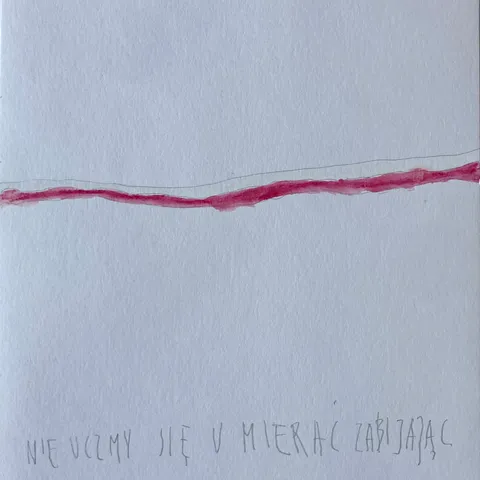 NIE UCZMY SIĘ U MIERAĆ ZABIJAJĄC